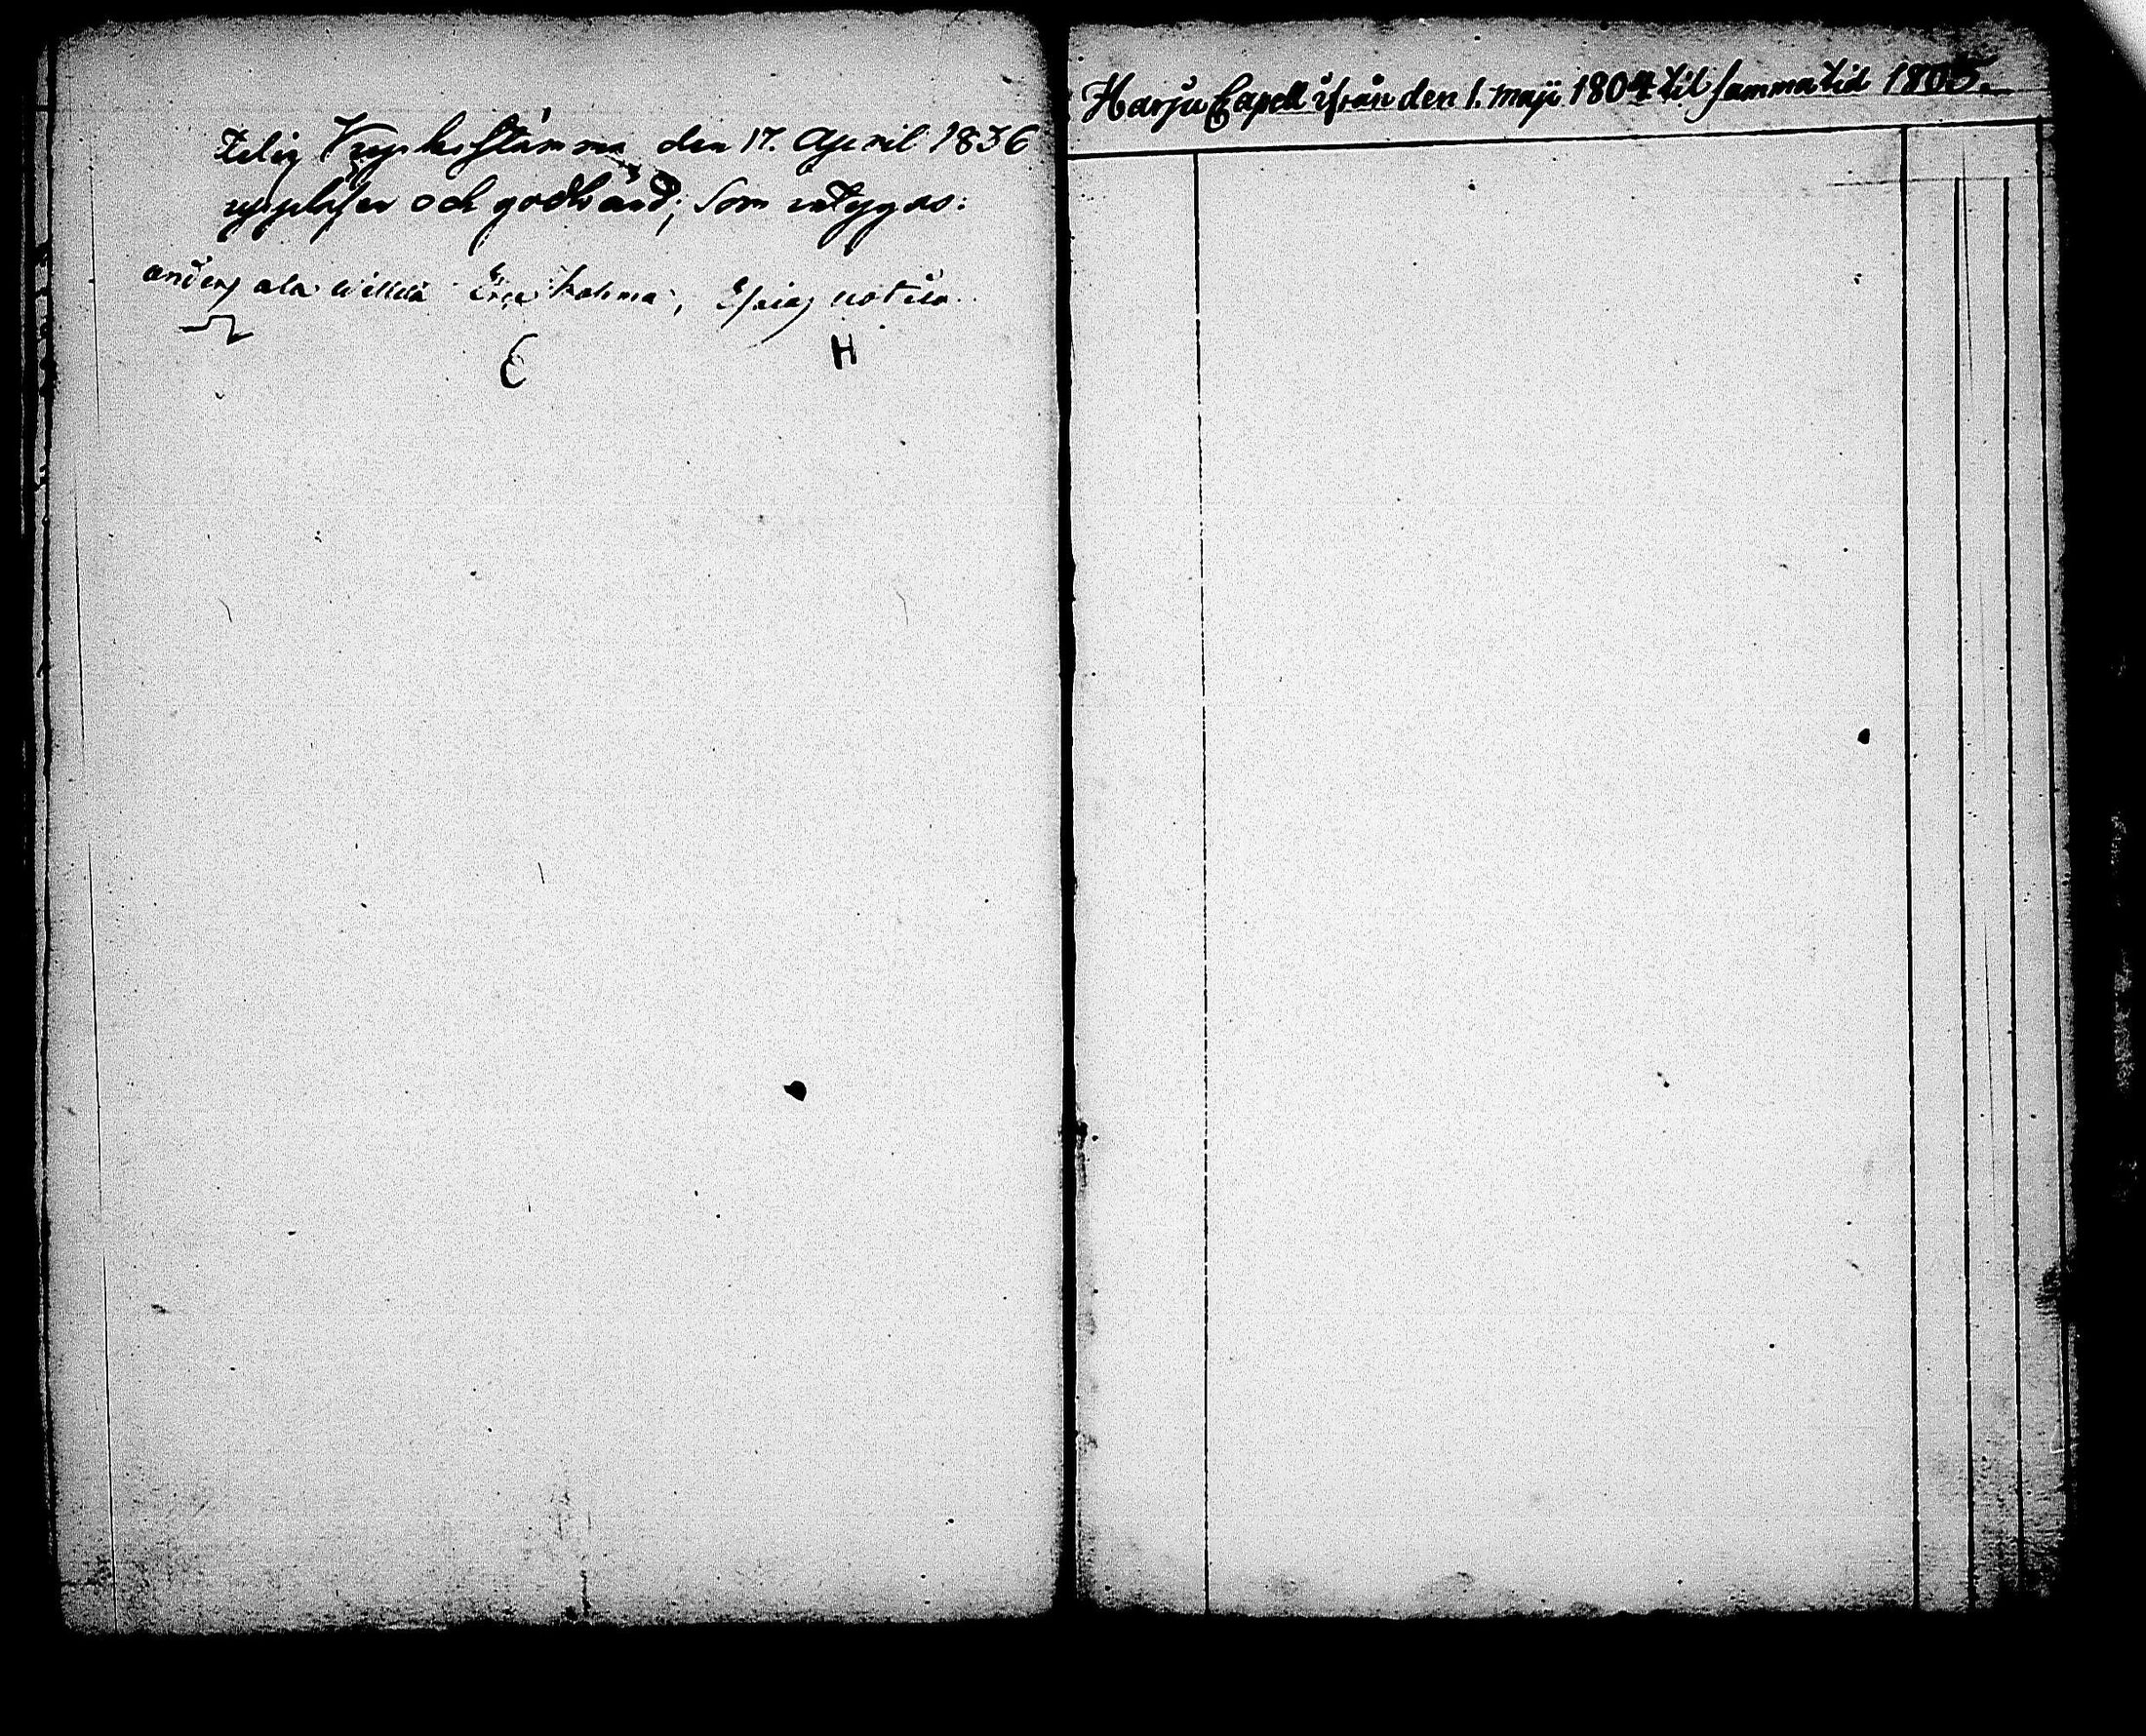 Kyrkostämma den 17. April 1836
uppläsen och godkänd; Som intygas:
anders ala willilä Eric kahma, Esaias notila.
E H
Harju Capell ifrån den 1. maji 1804 til samma tid 1805.